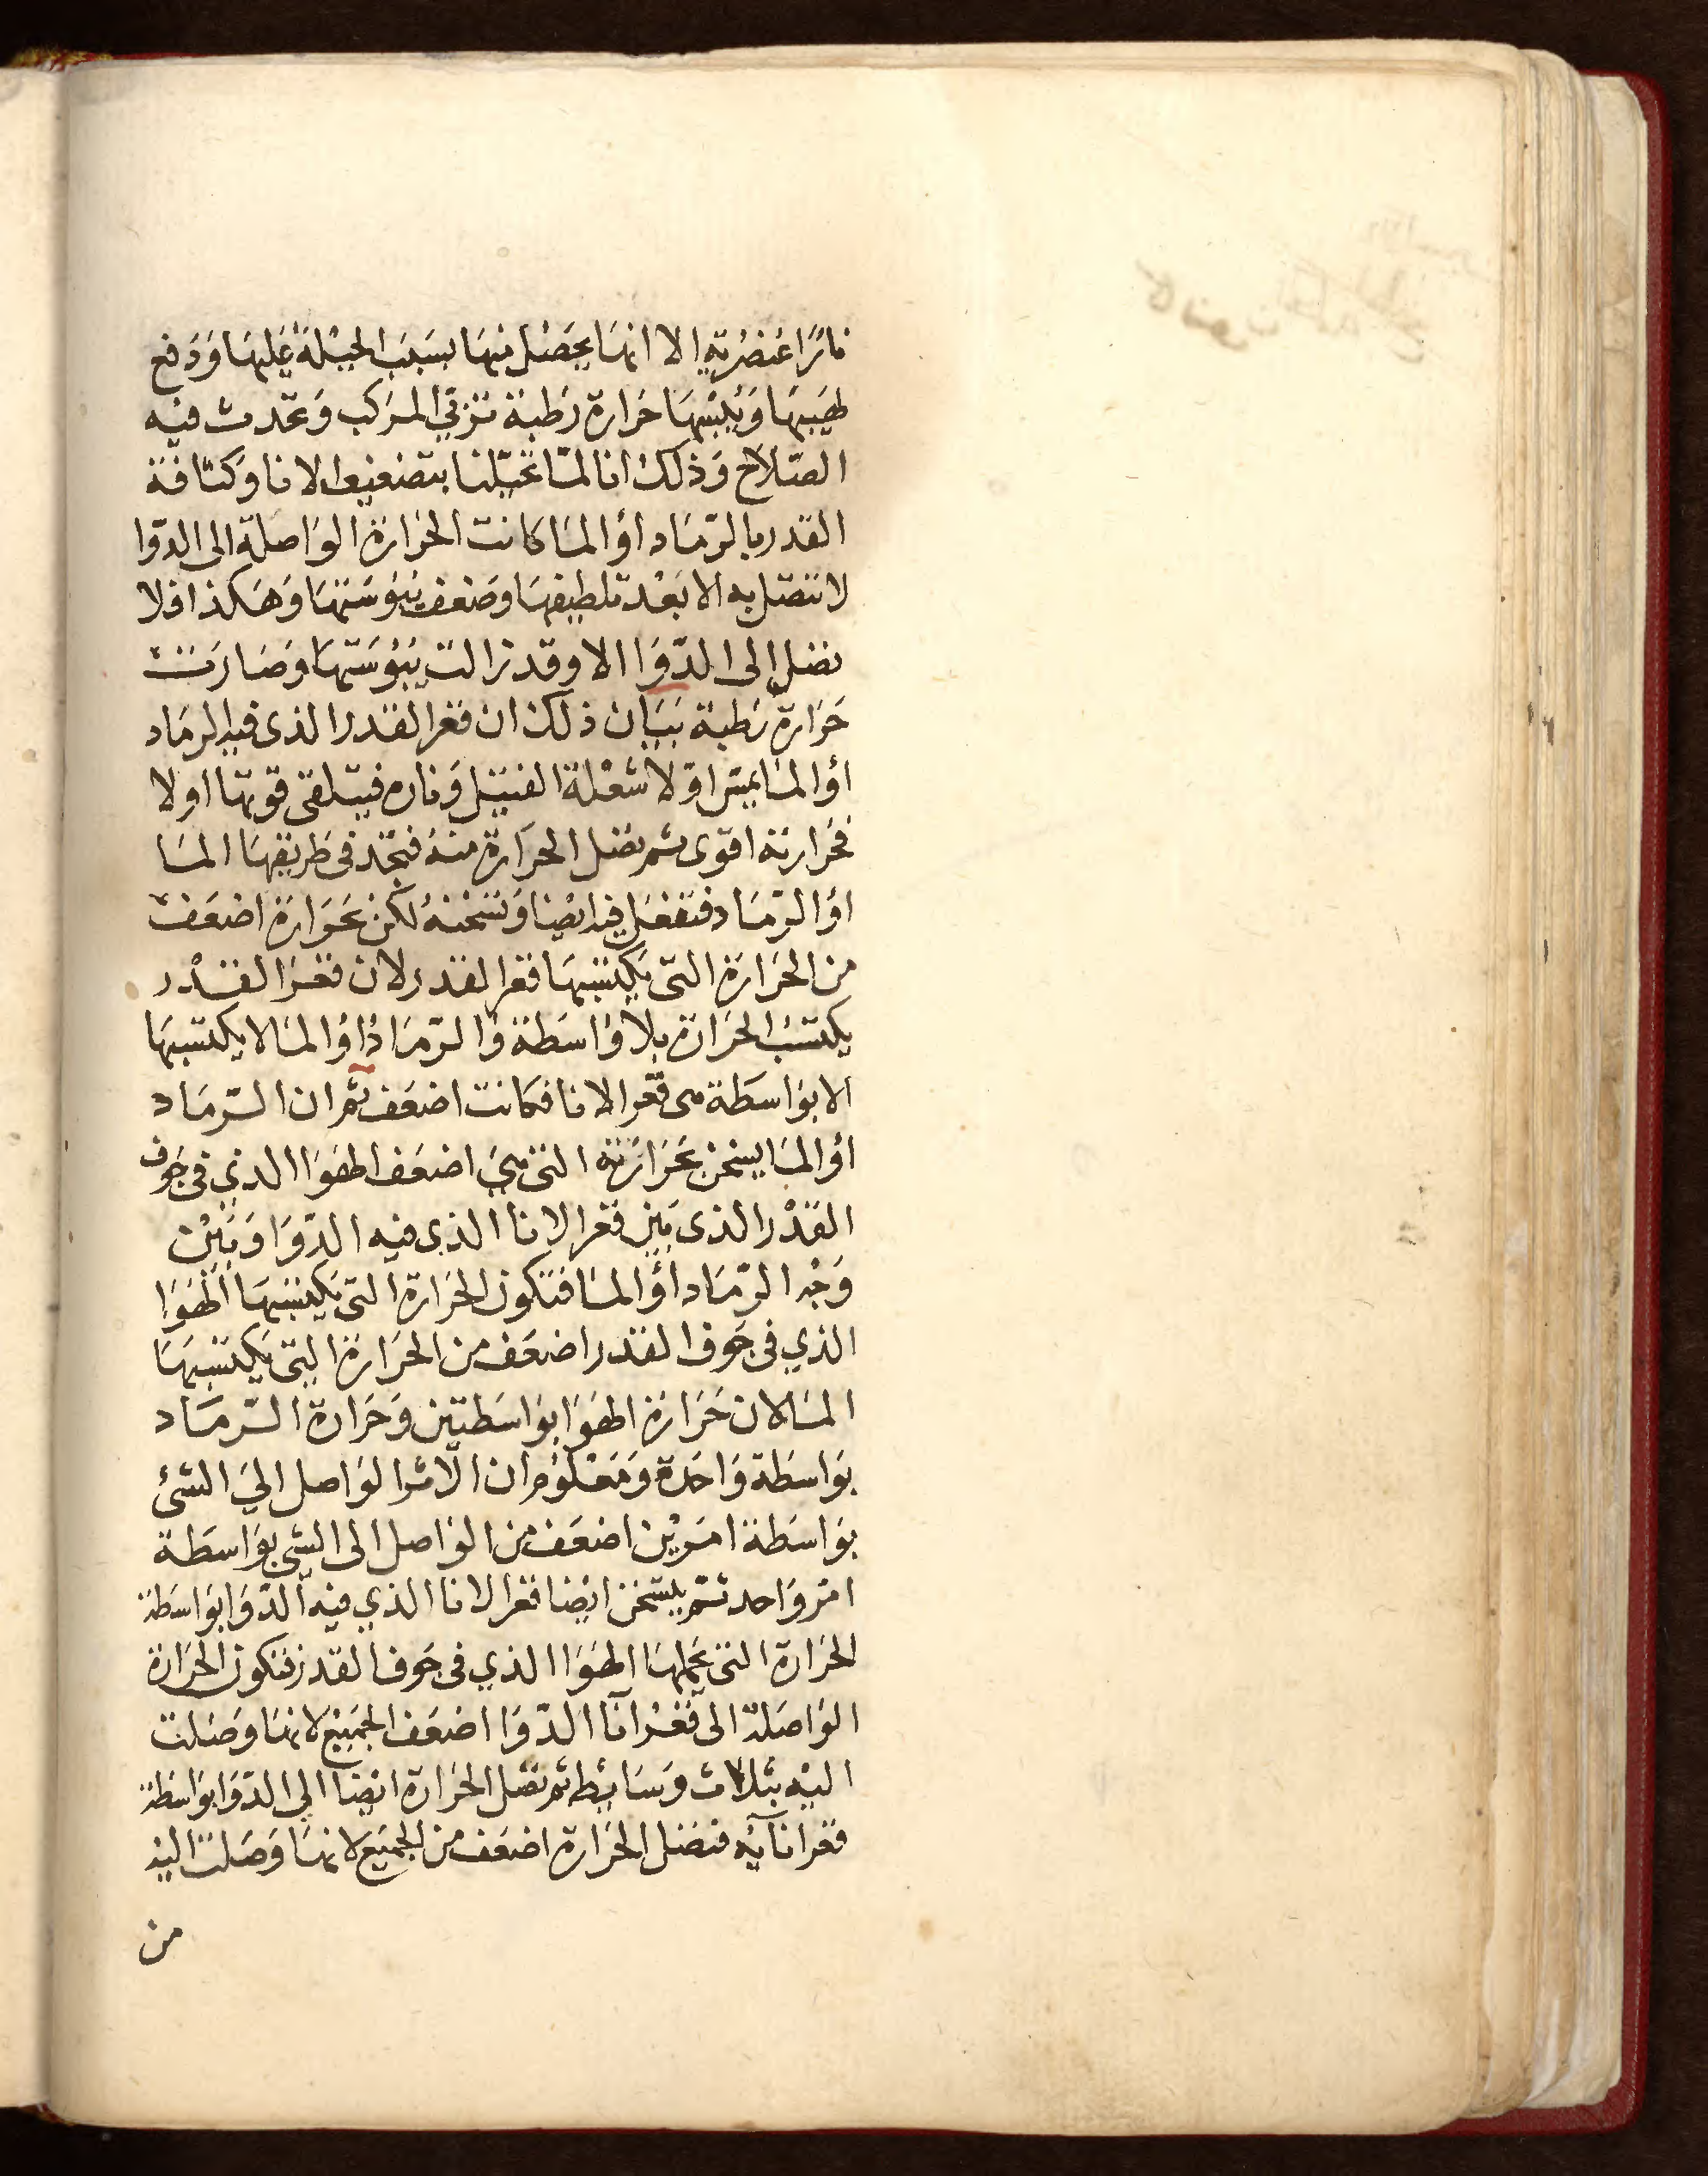 نارًا عنصرية الا انها يحصل منها بسبب الحيلة عليها ودفع
لهيبها ويبسها حرارة رطبة ترقي المركب وتحدث فيه
الصلاح وذلك انا لما تحيلنا بتضعيف الانا وكثافة
القدر بالرماد أو الما كانت الحرارة الواصلة الى الدوا
لا تتصل به الا بعد تلطيفها وضعف يبوستها وهكذا فلا
تصل الى الدوا الا وقد زالت يبوستها وصارت
حرارة رطبة بيان ذلك ان قعر القدر الذى فيه الرماد
أو الما يمس اولا شعلة الفتيل وناره فيتلقى قوتها اولا
فحرارته اقوى ثم تصل الحرارة منه فتجد في طريقها الما
او الرماد فتفعل فيه ايضا وتسخنه لكن بحرارة اضعف
من الحرارة التى يكتسبها قعر القدر لان قعر القدر
يكتسب الحرارة بلا واسطة والرماد او الما لا يكتسبها
الا بواسطة هى قعر الانا فكانت اضعف ثم ان الرماد
أو الما يسخن بحرارته التى هي اضعف الهوا الذي في جوف
القدر الذى بين قعر الانا الذى فيه الدوا وبين
وجه الرماد أو الما فتكون الحرارة التى يكتسبها الهوا
الذي فى جوف القدر اضعف من الحرارة التى يكتسبها
الما لان حرارة الهوا بواسطتين وحرارة الرماد
بواسطة واحدة ومعلوم ان الامر الواصل الي الشئ
بواسطة امرين اضعف من الواصل الى الشى بواسطة
امر واحد ثم يسخن ايضا قعر الانا الذي فيه الدوا بواسطة
الحرارة التى يحملها الهوا الذي فى جوف القدر فتكون الحرارة
الواصلة الى قعر آنا الدوا اضعف الجميع لانها وصلت
اليه بثلاث وسايط ثم تصل الحرارة ايضا الى الدوا بواسطة
قعر انآيه فتصل الحرارة اضعف من الجميع لانها وصلت اليه
من